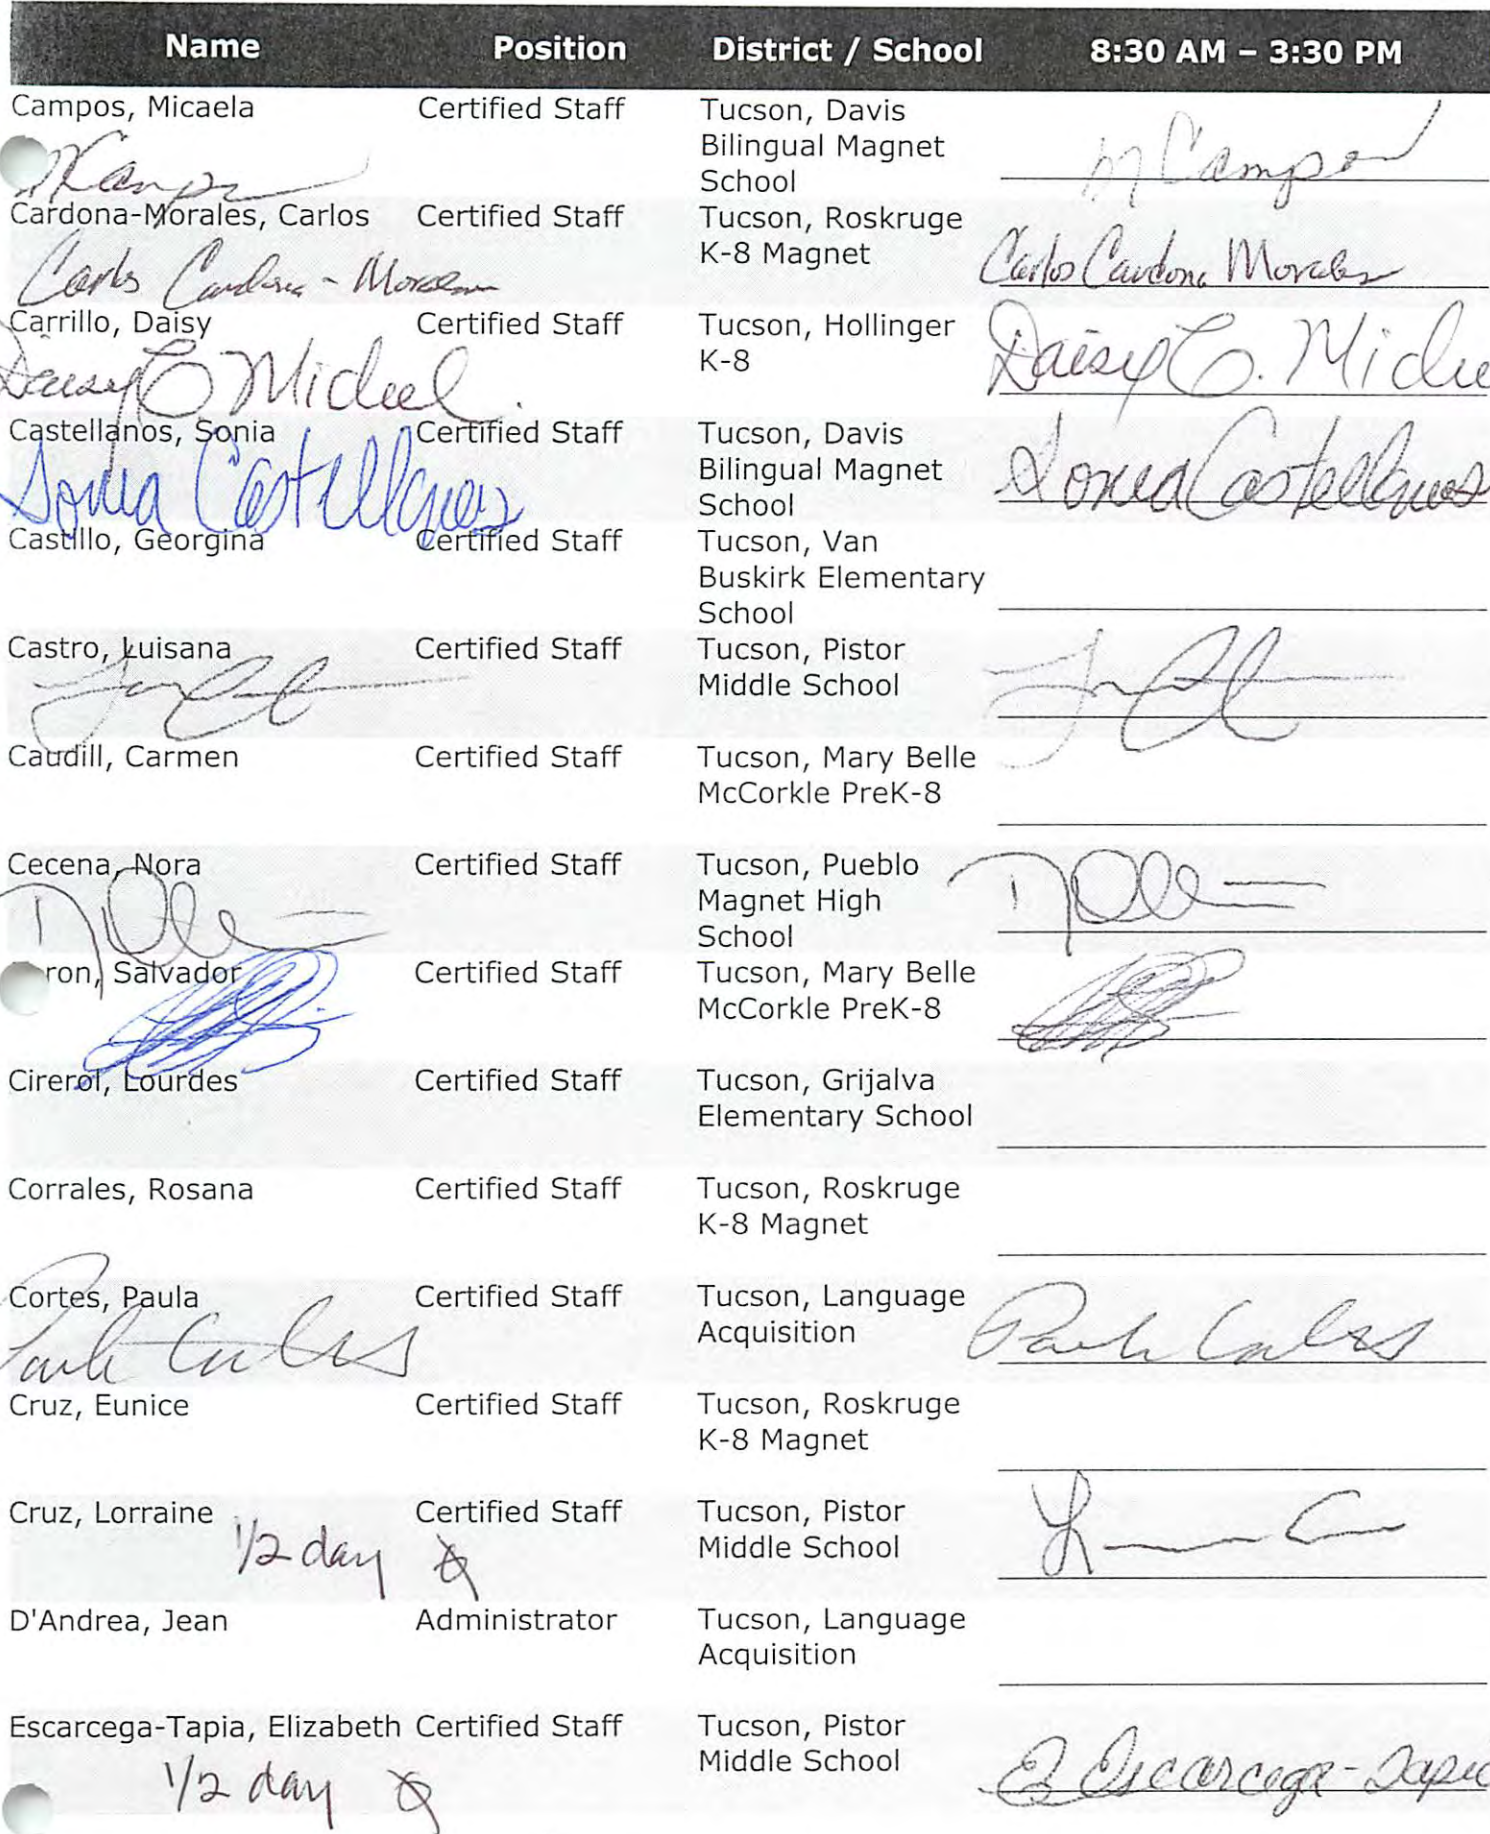 Name Position District / School 8:30 AM – 3:30 PM
Campos, Micaela Certified Staff Tucson, Davis
Bilingual Magnet
School
M Campos
Cardona-Morales, Carlos Certified Staff Tucson, Roskruge
K-8 Magnet
Carlos Cardona-Morales Carlos Cardona Morales
Carrillo, Daisy Certified Staff Tucson, Hollinger
K-8
Daisy C. Michel. Daisy C. Miche
Castellanos, Sonia Certified Staff Tucson, Davis
Bilingual Magnet
School
Sonia Castellanos Sonia Castellanos
Castillo, Georgina Certified Staff Tucson, Van
Buskirk Elementary
School
Castro, Luisana Certified Staff Tucson, Pistor
Middle School
Caudill, Carmen Certified Staff Tucson, Mary Belle
McCorkle PreK-8
Cecena, Nora Certified Staff Tucson, Pueblo
Magnet High
School
ron, Salvador Certified Staff Tucson, Mary Belle
McCorkle PreK-8
Cirerol, Lourdes Certified Staff Tucson, Grijalva
Elementary School
Corrales, Rosana Certified Staff Tucson, Roskruge
K-8 Magnet
Cortes, Paula Certified Staff Tucson, Language
Acquisition
Paula Cortes Paula Cortes
Cruz, Eunice Certified Staff Tucson, Roskruge
K-8 Magnet
Cruz, Lorraine Certified Staff Tucson, Pistor
Middle School
1/2 day
D'Andrea, Jean Administrator Tucson, Language
Acquisition
Escarcega-Tapia, Elizabeth Certified Staff Tucson, Pistor
Middle School
1/2 day E Escarcega-Tapia